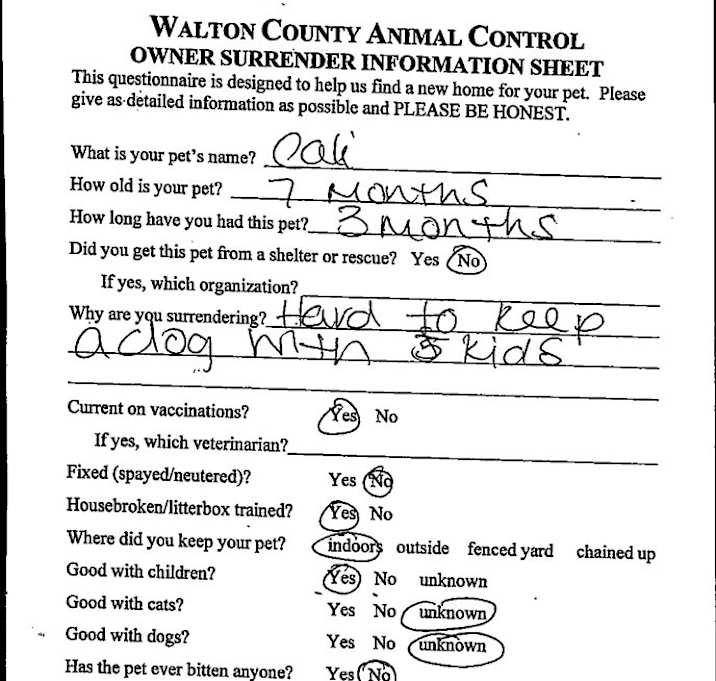 WALTON COUNTY ANIMAL CONTROL
OWNER SURRENDER INFORMATION SHEET
This questionnaire is designed to help us find a new home for your pet. Please
give as detailed information as possible and PLEASE BE HONEST.
What is your pet's name? Cali
How old is your pet? 7 Months
How long have you had this pet? 3 Months
Did you get this pet from a shelter or rescue? Yes No
If yes, which organization?
Why are you surrendering? Hard to keep
a dog with 5 kids
Current on vaccinations? Yes No
If yes, which veterinarian?
Fixed (spayed/neutered)? Yes No
Housebroken/litterbox trained? Yes No
Where did you keep your pet? indoors outside fenced yard chained up
Good with children? Yes No unknown
Good with cats? Yes No unknown
Good with dogs? Yes No unknown
Has the pet ever bitten anyone? Yes No